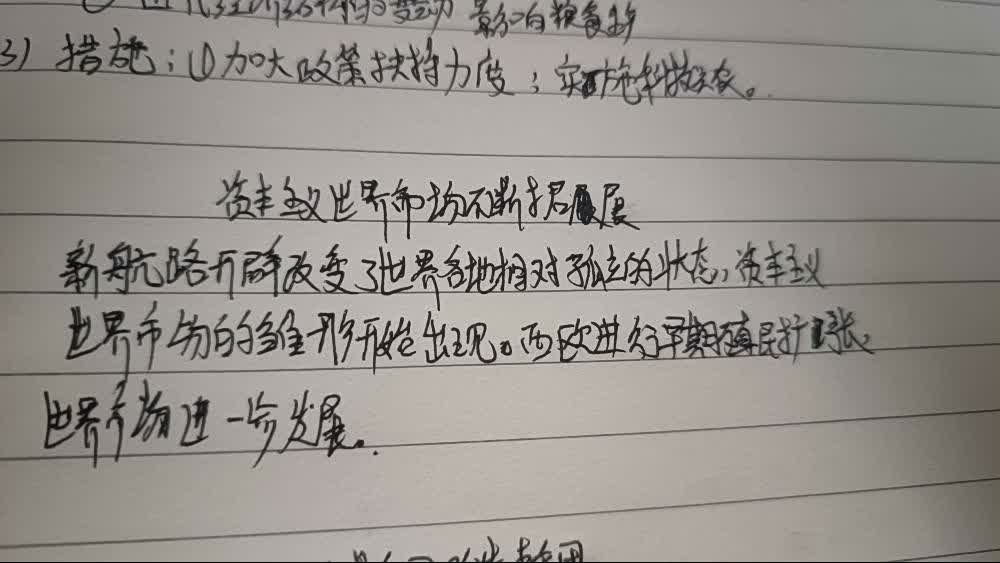 影响粮食生
3) 措施：①加大政策扶持力度；实施科技兴农。
资本主义世界市场不断拓展
新航路开辟改变了世界各地相对孤立的状态，资本主义
世界市场的雏形开始出现。西欧进行早期殖民扩张，
世界市场进一步发展。